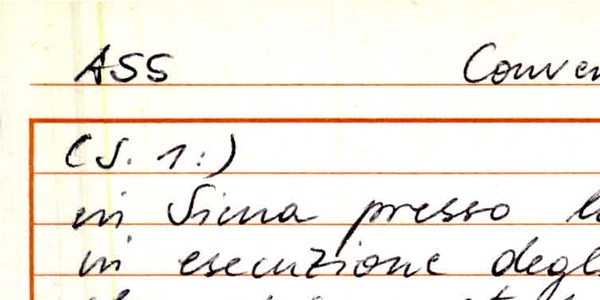 ASS Conven
(S. 1:)
in Siena presso la
in esecuzione degl